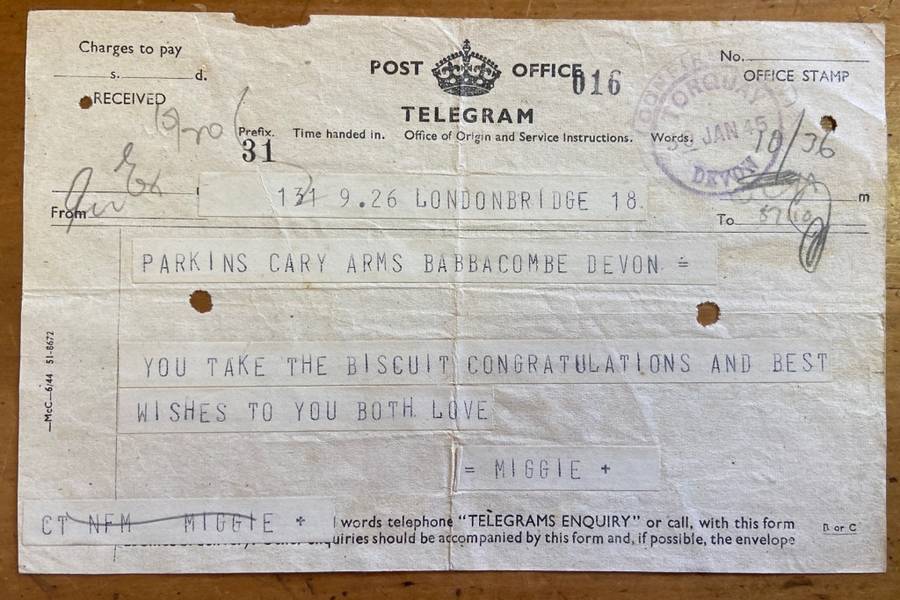 Charges to pay
s. d.
RECEIVED
POST OFFICE
016
TELEGRAM
No.
OFFICE STAMP
TORQUAY
JAN 45
DEVON
Prefix. Time handed in. Office of Origin and Service Instructions. Words.
31
10/36
131 9.26 LONDONBRIDGE 18
m
From
To
PARKINS CARY ARMS BABBACOMBE DEVON =
YOU TAKE THE BISCUIT CONGRATULATIONS AND BEST
WISHES TO YOU BOTH LOVE
= MIGGIE +
CT NFM MIGGIE +
words telephone "TELEGRAMS ENQUIRY" or call, with this form
B or C
quiries should be accompanied by this form and, if possible, the envelope
—McC—6/44 51-8672